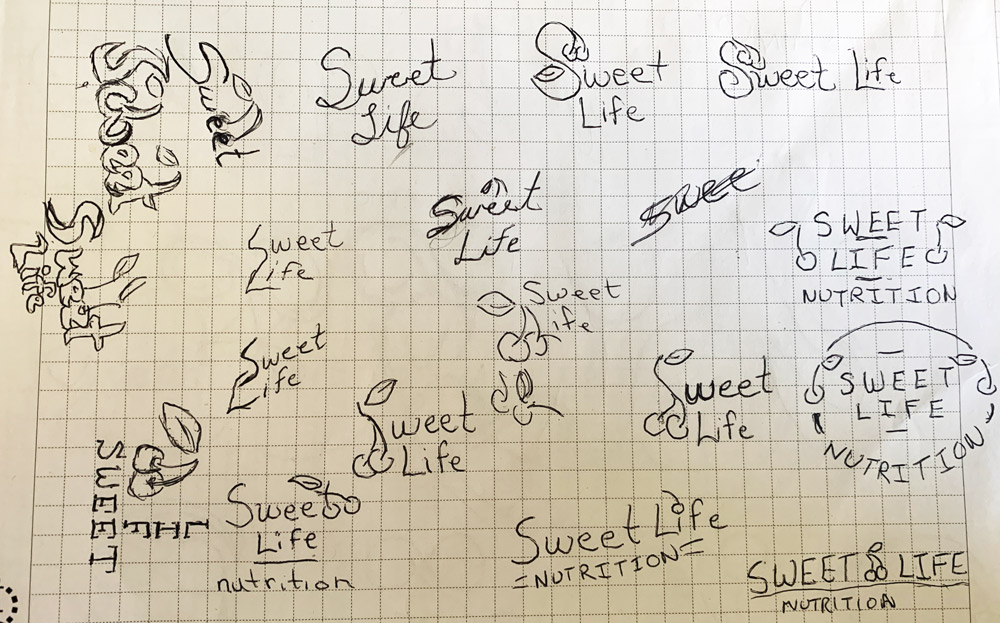 Sweet
Sweet
Sweet
Life
Sweet
Life
Sweet Life
Sweet
Life
Sweet
Life
Sweet
Life
SWEE
SWEET
LIFE
NUTRITION
Sweet
ife
Sweet
Life
Sweet
Life
Sweet
Life
SWEET
LIFE
NUTRITION
SWEET
Sweet
Life
nutrition
Sweet Life
=NUTRITION=
SWEET LIFE
NUTRITION